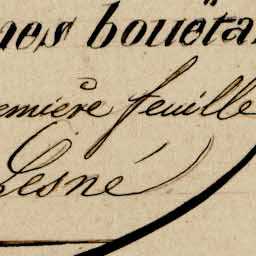 nes bouëta
remière feuille
Lesné